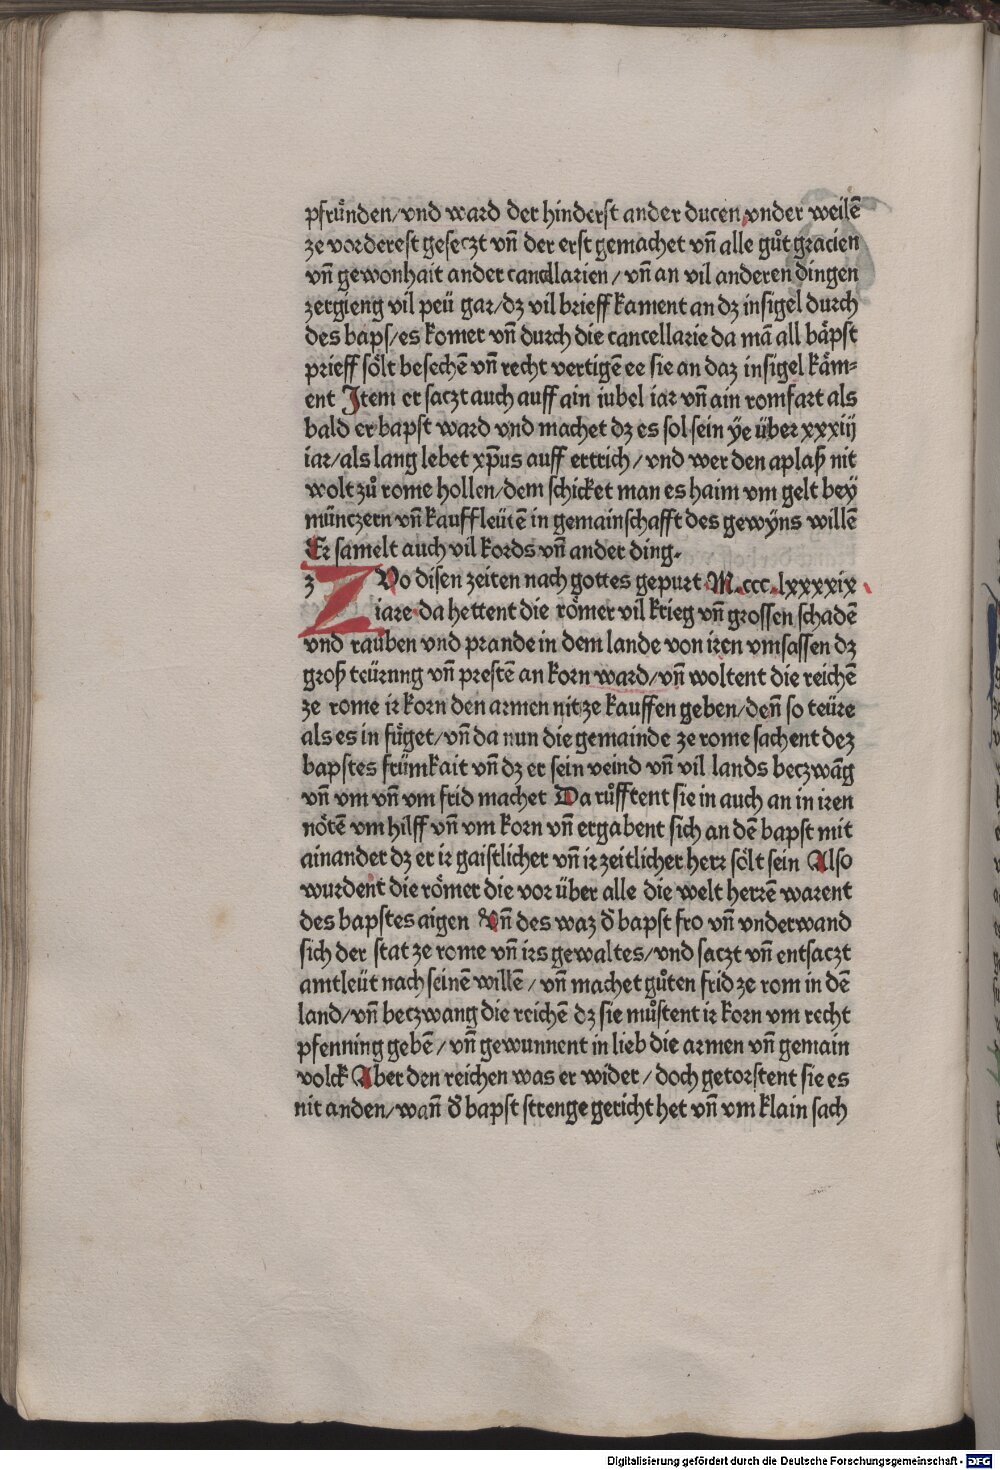 pfruͤnden/vnd ward der hinderst ander ducen vnder weilē
ze vorderest geseczt vn̄ der erst gemachet vn̄ alle guͦt gracien
vn̄ gewonhait ander cancllarien/ vn̄ an vil anderen dingen
zergieng vil peü gar/dz vil brieff kament an dz insigel durch
des baps/es komer vn̄ durch die cancellarie da mā all baͤpst
prieff soͤlt besechē vn̄ recht vertigē ee sie an daz insigel kaͤm-
ent Item er saczt auch auff ain iubel iar vn̄ ain romfart als
bald er bapst ward vnd machet dz es sol sein ÿe über xxxiij
iar/als lang lebet xp̄us auff ertrich/ vnd wer den aplaß nit
wolt zuͦ rome hollen/dem schicket man es haim vm gelt beÿ
münczern vn̄ kauffleütē in gemainschafft des gewÿns willē
Er samelt auch vil kords vn̄ ander ding.
z Z Vo disen zeiten nach gottes gepurt M.ccc.lxxxxix
iare da hettent die roͤmer vil krieg vn̄ grossen schadē
vnd rauben vnd prande in dem lande von iren vmsassen dz
groß teürung vn̄ prestē an korn ward/vn̄ woltent die reichē
ze rome ir korn den armen nit ze kauffen geben/den̄ so teüre
als es in fuͤget/vn̄ da nun die gemainde ze rome sachent dez
bapstes frümkait vn̄ dz er sein veind vn̄ vil lands beczwāg
vn̄ vm vn̄ vm frid machet Da ruͦfftent sie in auch an in iren
noͤtē vm hilff vn̄ vm korn vn̄ ergabent sich an dē bapst mit
ainander dz er ir gaistlicher vn̄ ir zeitlicher herr soͤlt sein Also
wurdent die roͤmer die vor über alle die welt herrē warent
des bapstes aigen Vn̄ des waz d̄ bapst fro vn̄ vnderwand
sich der stat ze rome vn̄ irs gewaltes/vnd saczt vn̄ entsaczt
amtleüt nach seinē willē/ vn̄ machet guͦten frid ze rom in dē
land/vn̄ beczwang die reichē dz sie muͦstent ir korn vm recht
pfenning gebē/ vn̄ gewunnent in lieb die armen vn̄ gemain
volck Aber den reichen was er wider/ doch getorstent sie es
nit anden/wan̄ d̄ bapst strenge gericht het vn̄ vm klain sach
Digitalisierung gefördert durch die Deutsche Forschungsgemeinschaft - DFG